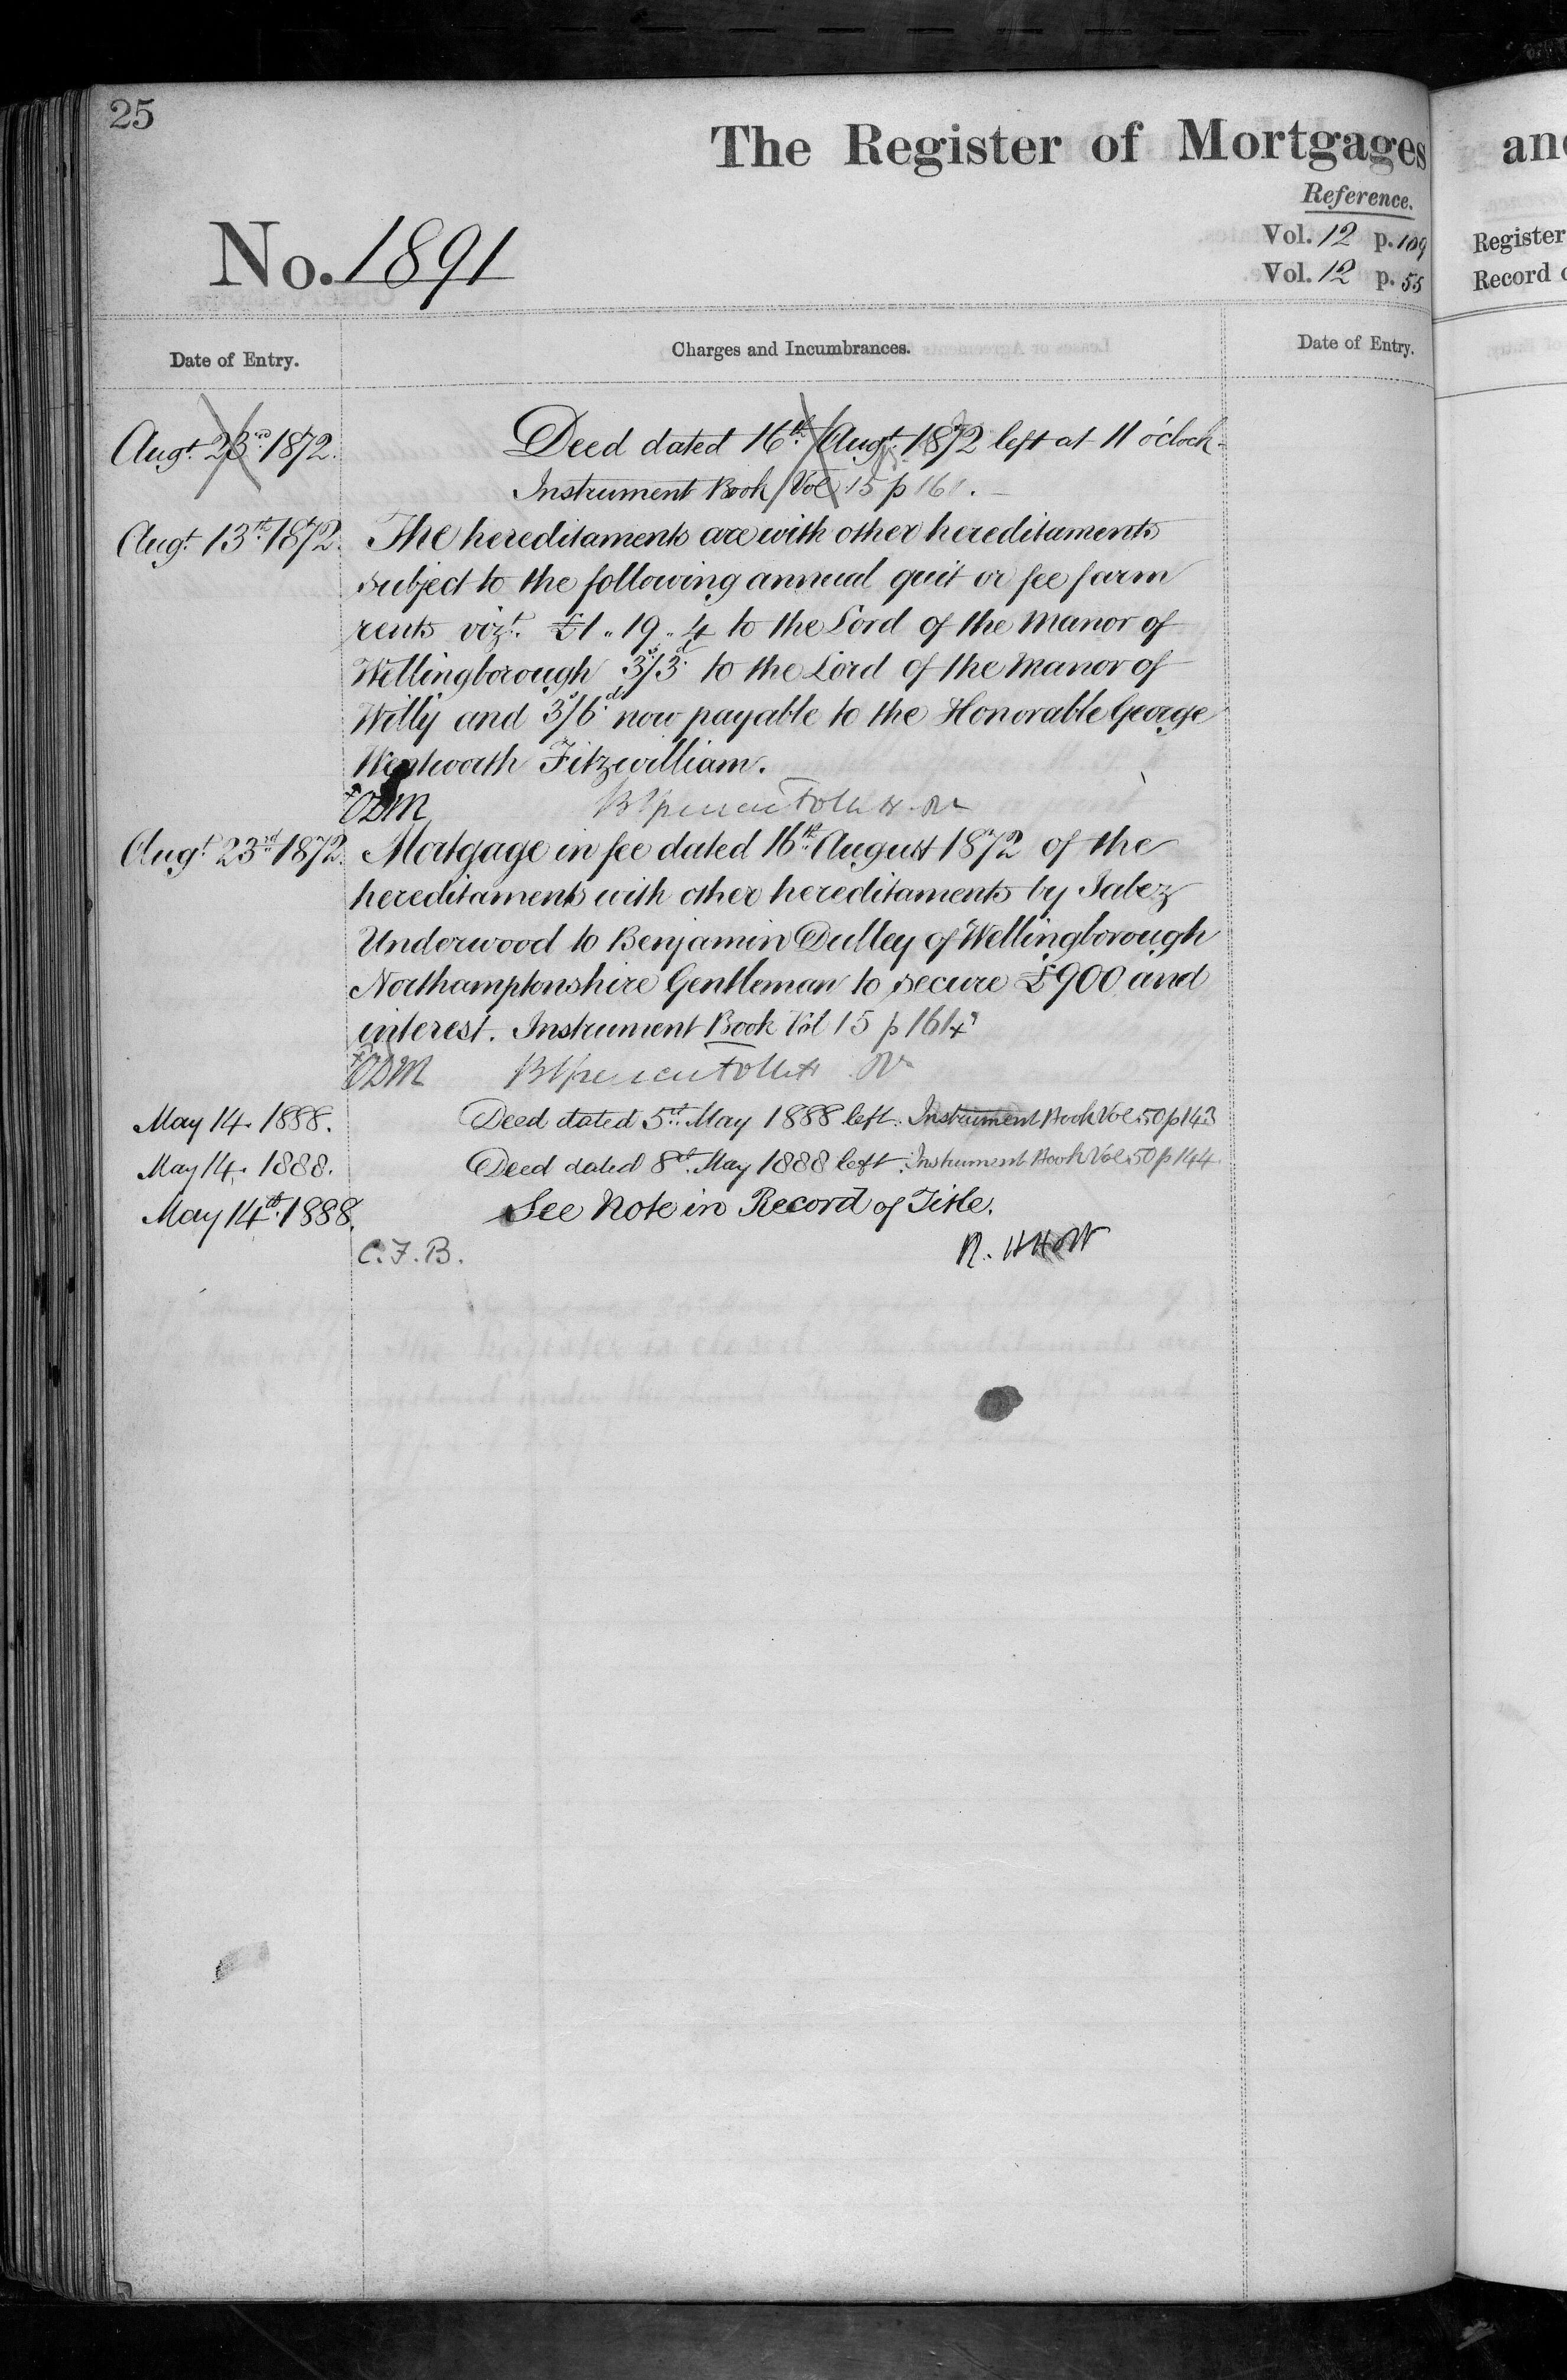 25
The Register of Mortgages
Reference.
No. 1891
Vol. 12 p. 109
Vol. 12 p. 55
an
Register
Record
Date of Entry.
Charges and Incumbrances.
Date of Entry.
Augt. 23rd 1872. Deed dated 16th Augt. 1872 left at 11 o'clock.
Instrument Book Vol 15 p 161.
Augt. 13th 1872. The hereditaments are with other hereditaments
subject to the following annual quit or fee farm
rents vizt. £1 " 19 " 4 to the Lord of the Manor of
Wellingborough 3s/3d to the Lord of the Manor of
Willy and 3s/6d now payable to the Honorable George
Wentworth Fitzwilliam.
ODM
Augt. 23rd 1872. Mortgage in fee dated 16th August 1872 of the
hereditaments with other hereditaments by Jabez
Underwood to Benjamin Dulley of Wellingborough
Northamptonshire Gentleman to secure £900 and
interest. Instrument Book Vol 15 p 161
ODM
May 14. 1888. Deed dated 5th May 1888 left. Instrument Book Vol 50 p 143
May 14. 1888. Deed dated 8th May 1888 left. Instrument Book Vol 50 p 144.
May 14th 1888. See Note in Record of Title.
C.F.B.